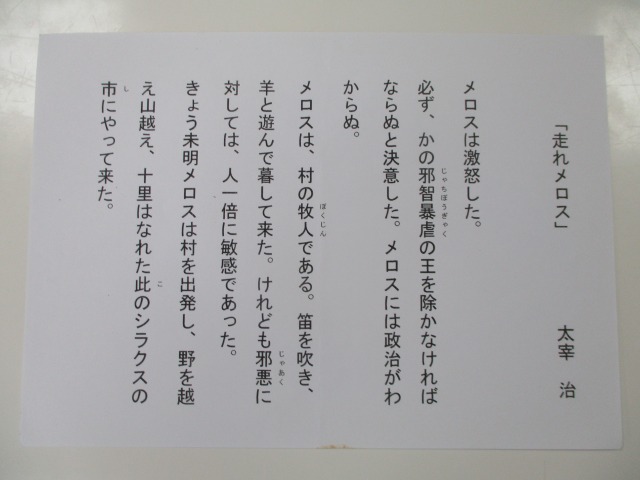 「走れメロス」
太宰 治
メロスは激怒した。
必ず、かの邪智暴虐の王を除かなければ
じゃちぼうぎゃく
ならぬと決意した。メロスには政治がわ
からぬ。
メロスは、村の牧人である。笛を吹き、
ぼくじん
羊と遊んで暮して来た。けれども邪悪に
じゃあく
対しては、人一倍に敏感であった。
きょう未明メロスは村を出発し、野を越
え山越え、十里はなれた此のシラクスの
こ
市にやって来た。
し